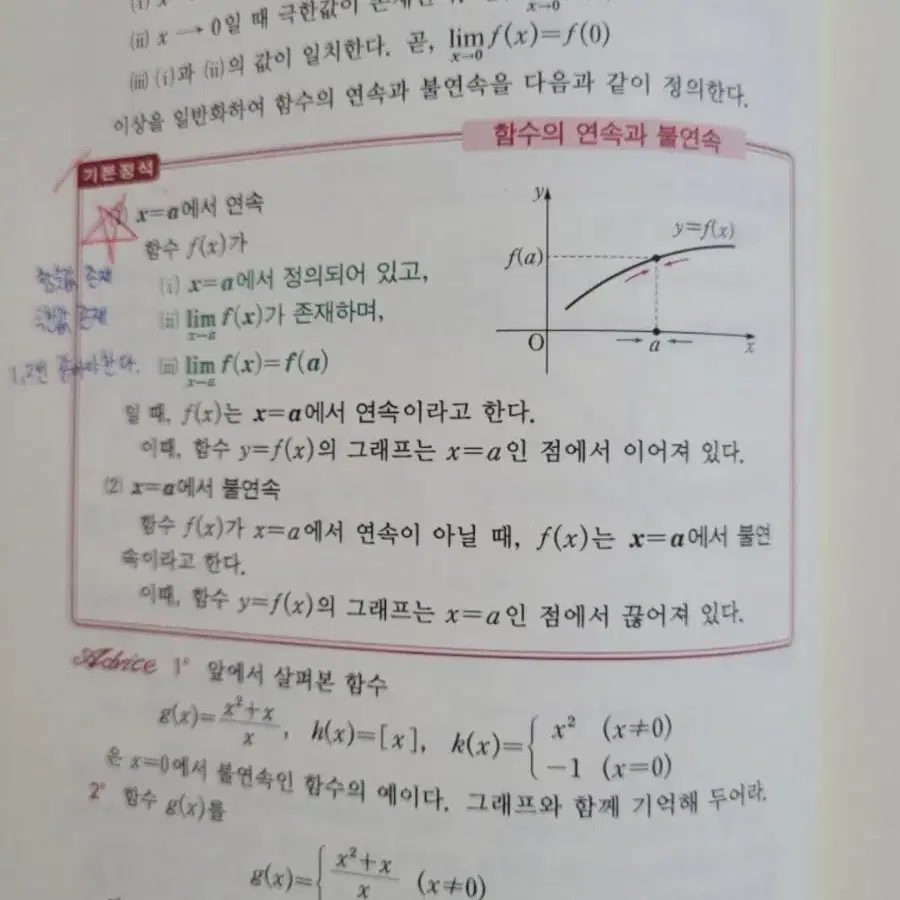 (ii) x → 0일 때 극한값이
(iii) (i)과 (ii)의 값이 일치한다. 곧, lim_{x→0} f(x)=f(0)
이상을 일반화하여 함수의 연속과 불연속을 다음과 같이 정의한다.
기본정석
함수의 연속과 불연속
x=a에서 연속
함수 f(x)가
함숫값 존재
(i) x=a에서 정의되어 있고,
극한값 존재
(ii) lim_{x→a} f(x)가 존재하며,
1, 2번 같아야한다.
(iii) lim_{x→a} f(x)=f(a)
y
y=f(x)
f(a)
O
a
x
일 때, f(x)는 x=a에서 연속이라고 한다.
이때, 함수 y=f(x)의 그래프는 x=a인 점에서 이어져 있다.
(2) x=a에서 불연속
함수 f(x)가 x=a에서 연속이 아닐 때, f(x)는 x=a에서 불연
속이라고 한다.
이때, 함수 y=f(x)의 그래프는 x=a인 점에서 끊어져 있다.
Advice 1° 앞에서 살펴본 함수
g(x)=\frac{x²+x}{x}, h(x)=[x], k(x)={ x² (x≠0)
−1 (x=0)
은 x=0에서 불연속인 함수의 예이다. 그래프와 함께 기억해 두어라.
2° 함수 g(x)를
g(x)={ \frac{x²+x}{x} (x≠0)